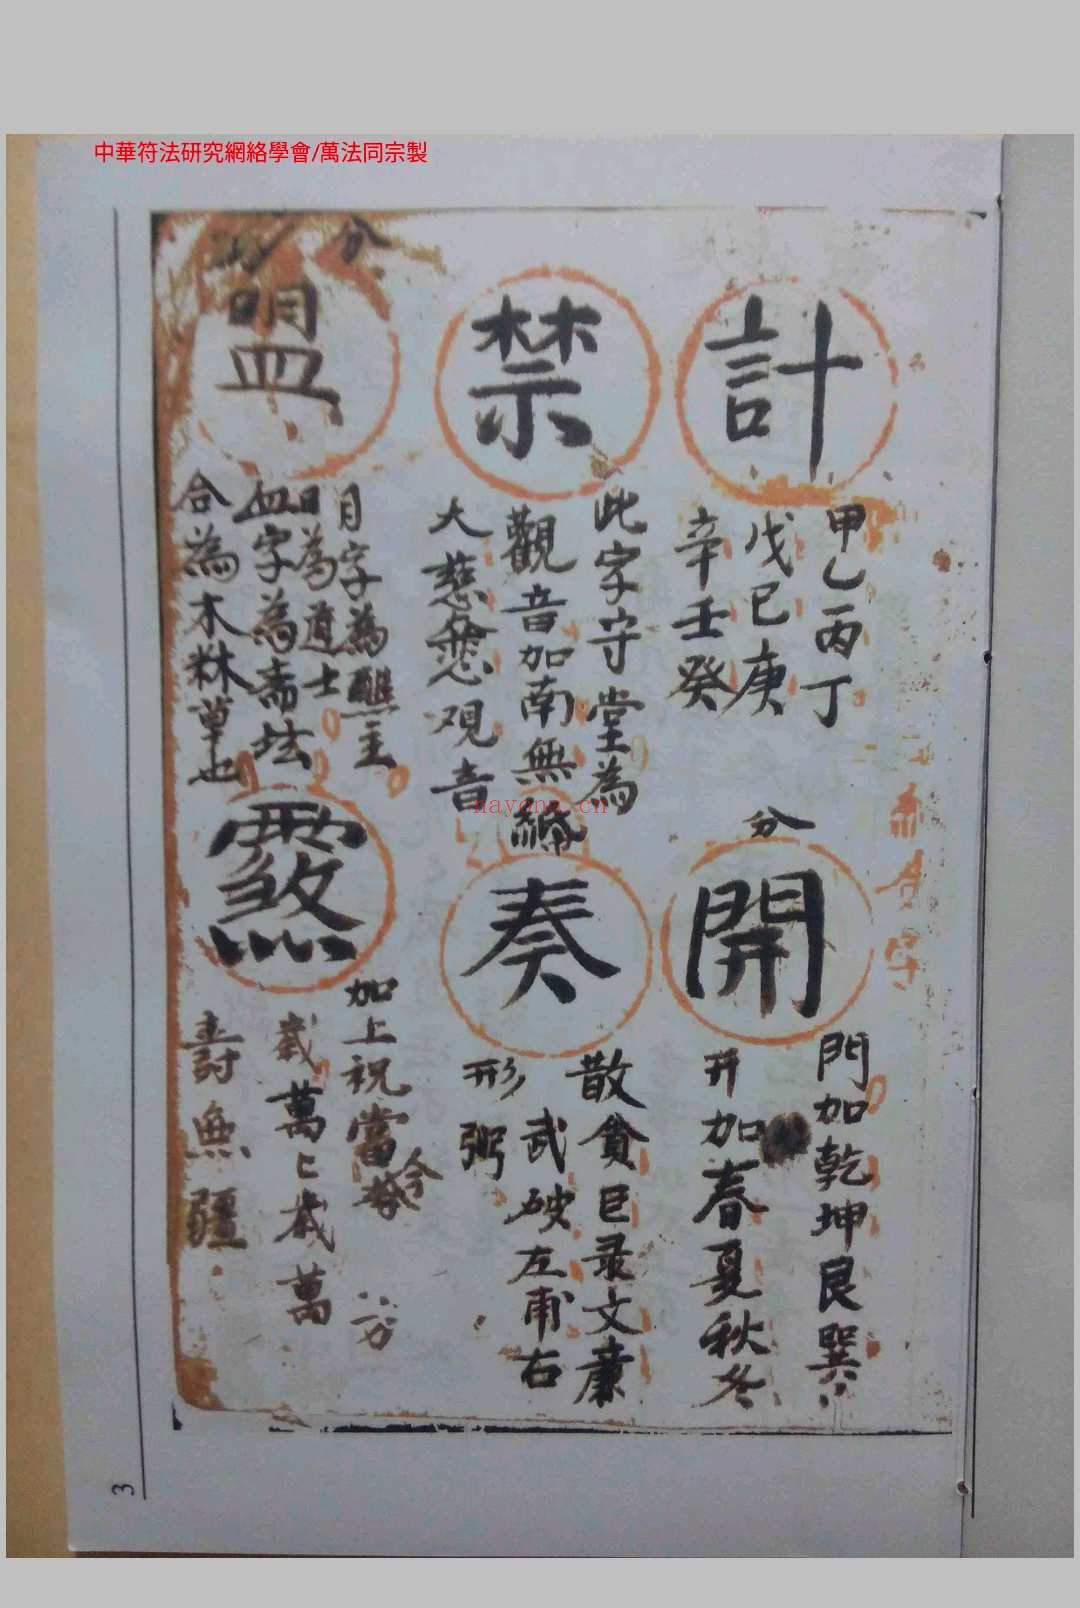 中華符法研究網絡學會/萬法同宗製
計
甲乙丙丁
戊己庚
辛壬癸
分
開
門加乾坤艮巽
开加春夏秋冬
禁
此字守堂為
觀音加南無
大慈悲观音
奏
散貪巨录文廉
武破左甫右
形
分
盟
月字為醮主
日為道士
血字為齋坛
合為木林草也
煞
加上祝當今
歲萬〻歲萬
壽無疆
nayona.cn
3